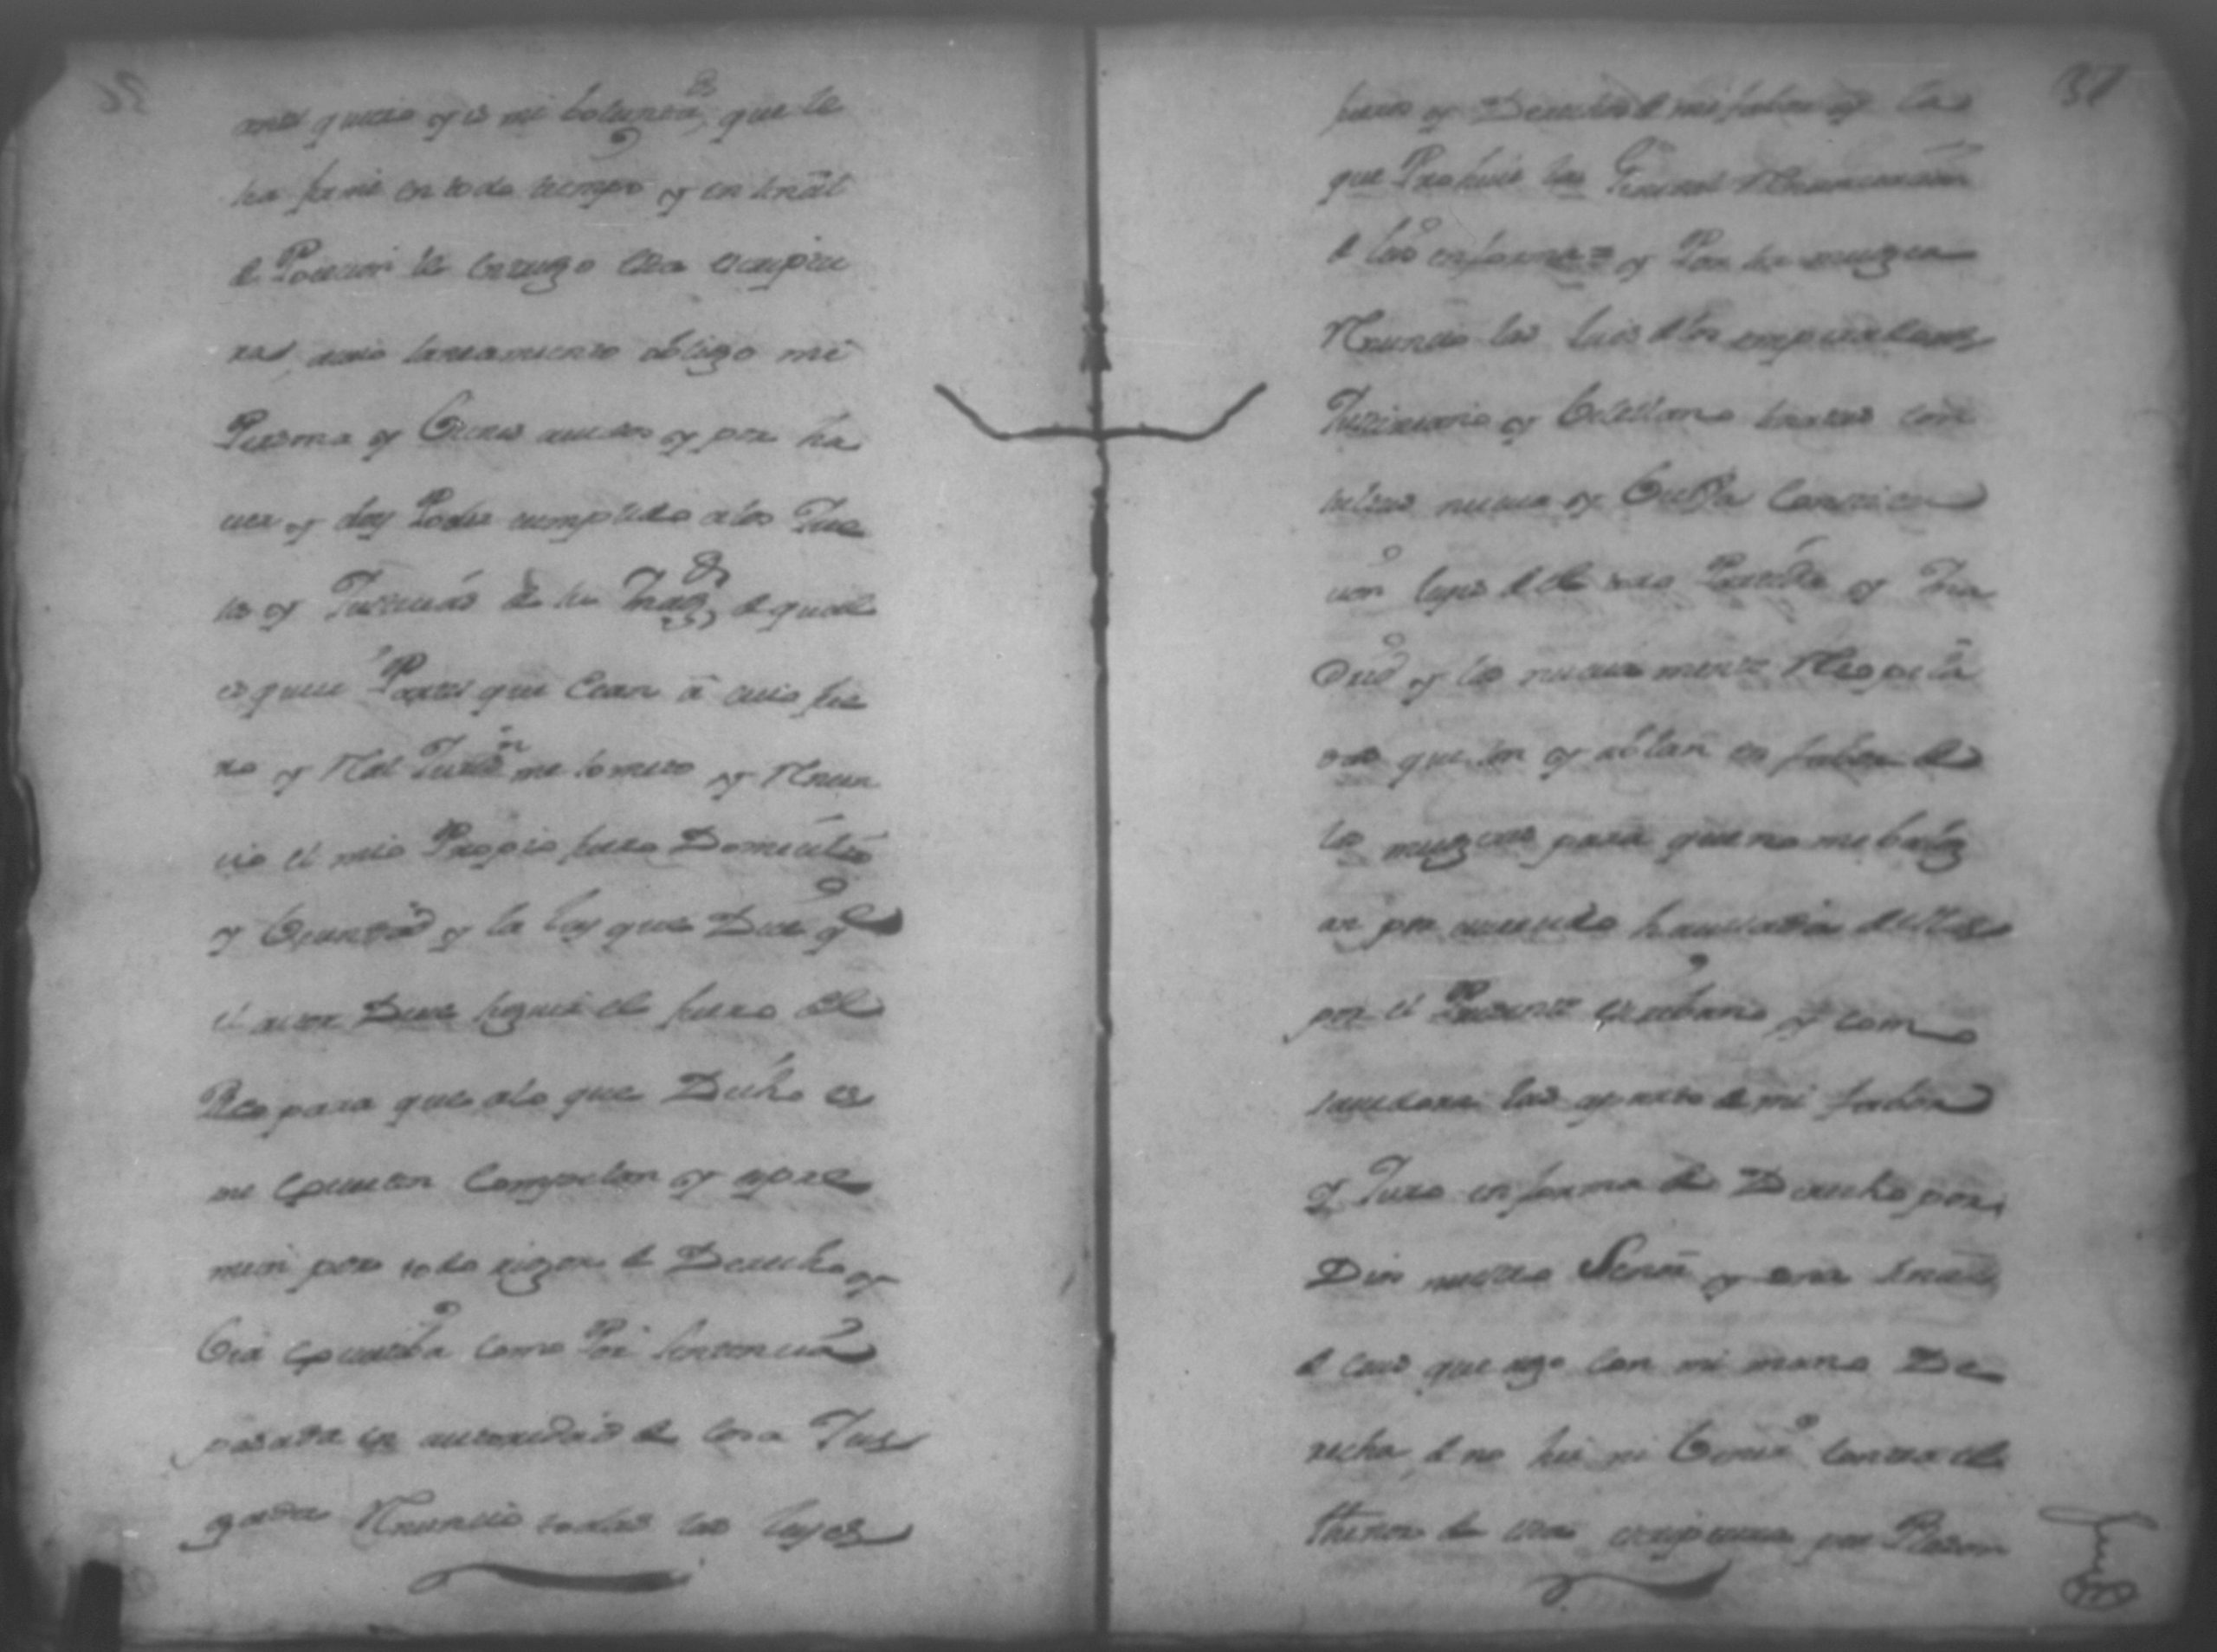 mas quiero y es mi boluntad que le
ha firme en todo tiempo y en señal
de Pocecion le otorgo esta escriptu
ra, cuio saneamiento obligo mi
Persona y Bienes auidos y por ha
uer y doy Poder cumplido a los Jue
ses y Justicias de su Mag.d de quales
es quier Partes que Cean â cuio fue
ro y Rl Jurisd.n me someto y Renun
cio el mio Propio fuero Domicilio
y Becindad y la ley que Dice q.e
el actor Deue seguir el fuero del
Reo para que alo que Dicho es
me ejecuten Compelan y apre
mien por todo rigor de Derecho y
Bia ejecutiba como Por Sentencia
pasada en autoridad de cosa Jus
gada Renuncio todas las leyes
37
fuero y Derechos de mi fabor y la
que Prohiue la General Renunciacion
de las en forma y Por ser muger
Renuncio las leies de los emperadores
Justiniano y Beleliano senatus con
sultus nueua y Bieja Constitu
cion leyes de el toro Partida y Ma
drid y las nueuamente Recopila
das que son y ablan en fabor de
las mugeres para que no me balg
an por auer sido hauisada de ellas
por el Presente escribano y como
sauedora las aparto de mi fabor
y Juro en forma de Derecho por
Dios nuestro Señor y una señal
de crus que ago con mi mano De
recha de no hir ni Benir contra el
thenor de esta escriptura por Razon